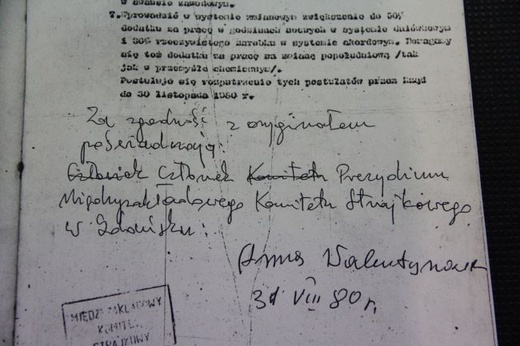 w sensie zawodowym.
7. Wprowadzić w systemie zmianowym zwiększenie do 50%
dodatku za pracę w godzinach nocnych w systemie dniówkowym
i 30% rzeczywistego zarobku w systemie akordowym. Domagamy
się też dodatku za pracę na zmianę popołudniową /tak
jak w przemyśle chemicznym/.
Postuluje się rozpatrzenie tych postulatów przez Rząd
do 30 listopada 1980 r.
Za zgodność z oryginałem
poświadczają:
Członek Członek Komitetu Prezydium
Międzyzakładowego Komitetu Strajkowego
w Gdańsku:
Anna Walentynowicz
31 VIII 80 r.
MIĘDZYZAKŁADOWY
KOMITET
STRAJKOWY